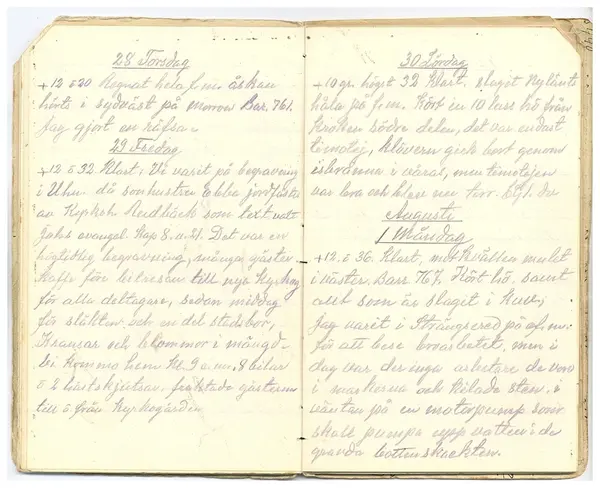 28 Torsdag
+12 o 20 Regnat hela f.m. åskan
hörts i sydväst på morron Bar. 761.
Jag gjort en räfsa.
29 Fredag
+12 o 32 Klart, Vi varit på begravning
i Ulr. då sonhustru Ebba jordfästes
av Kyrkoh. Rudbäck som text valt
Joh. evangel. Kap 8. v. 51. Det var en
högtidlig begravning, många gäster
Kaffe före bilresan till nya Kyrkog
för alla deltagare, sedan middag
för släkten och en del stadsbor,
Kransar och blommor i mängd
Vi kommo hem kl. 9 e.m. 8 bilar
o 2 hästskjutsar fraktade gästerna
till o från Kyrkogården
30 Lördag
+10 gr. högst 32 Klart. slaget Nylands
håla på f.m. Kört en 10 lass hö från
Kroken södre delen, det var endast
timotej, klövern gick bort genom
isbränna i våras, men timotejen
var bra och blev nu torr.
Augusti
1 Måndag
+12. o 36. Klart, mot kvällen mulet
i väster. Bar. 767. Kört hö samt
allt som är slaget i
Jag varit i Strängsered på e.m.
för att bese arbetet, men i
dag var der inga arbetare de voro
i markerna och kilade sten, i
väntan på en motorpump som
skall pumpa upp vattnet i de
gravda bottenschackten.